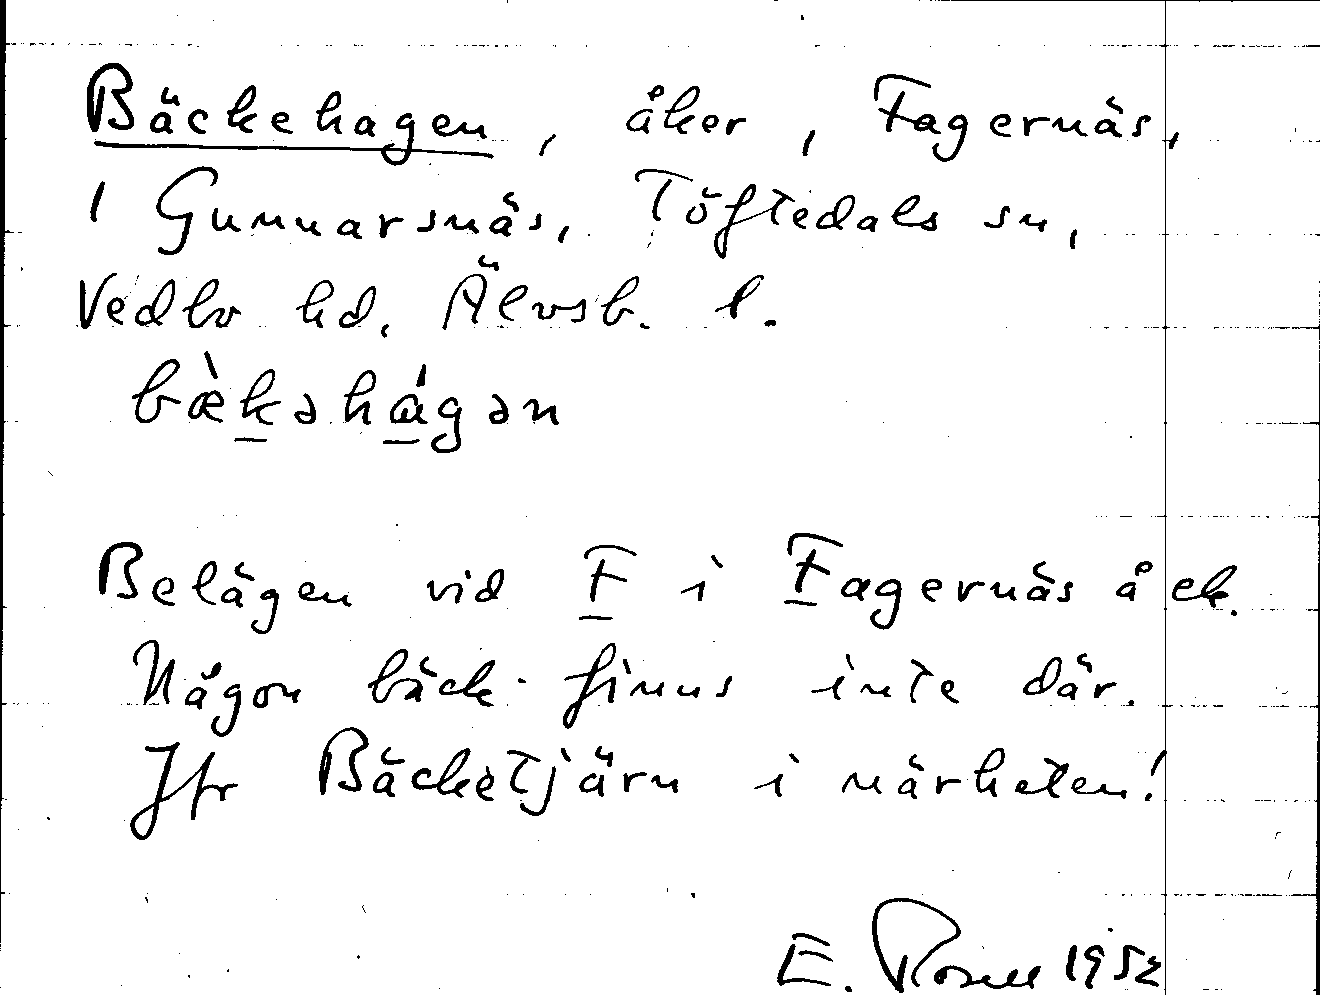 Bäckehagen, åker, Fagernäs,
1 Gunnarsnäs, Töftedals sn,
Vedbo hd, Älvsb. l.
bæ̀kəhágən
Belägen vid F i Fagernäs å ek.
Någon bäck finns inte där.
Jfr Bäcketjärn i närheten!
E. Rosell 1952